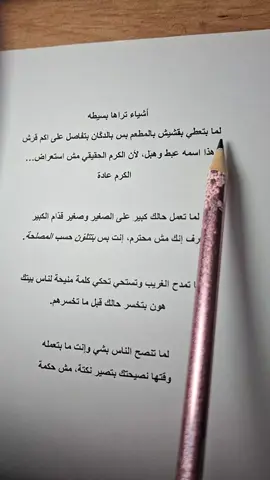 أشياء تراها بسيطه
لما بتعطي بقشيش بالمطعم بس بالدكّان بتفاصل على اكم قرش
هذا اسمه عبط وهبل، لأن الكرم الحقيقي مش استعراض...
الكرم عادة
لما تعمل حالك كبير على الصغير وصغير قدّام الكبير
رف إنك مش محترم، إنت بس بتتلوّن حسب المصلحة.
ا تمدح الغريب وتستحي تحكي كلمة منيحة لناس بيتك
هون بتخسر حالك قبل ما تخسرهم.
لما تنصح الناس بشي وإنت ما بتعمله
وقتها نصيحتك بتصير نكتة، مش حكمة